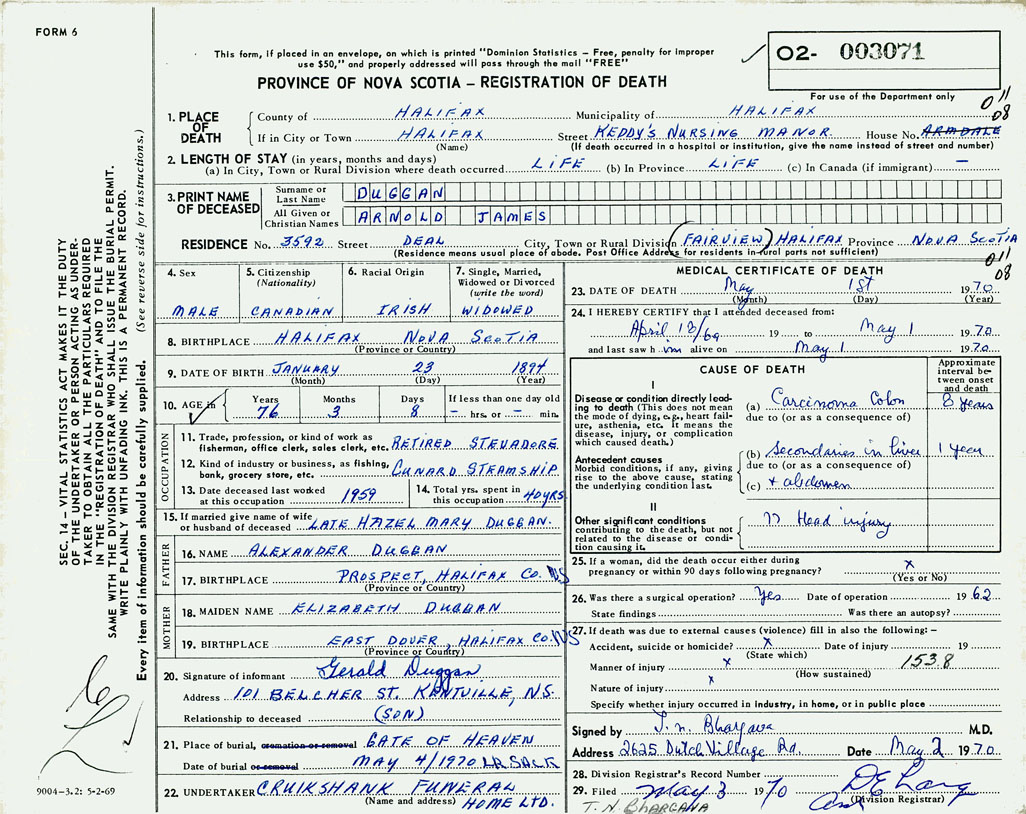 FORM 6
This form, if placed in an envelope, on which is printed "Dominion Statistics – Free, penalty for improper
use $50," and properly addressed will pass through the mail "FREE"
PROVINCE OF NOVA SCOTIA – REGISTRATION OF DEATH
02- 003071
For use of the Department only
011
08
1. PLACE OF DEATH
County of HALIFAX Municipality of HALIFAX
If in City or Town HALIFAX Street KEDDY'S NURSING MANOR House No. ARMDALE
(Name) (If death occurred in a hospital or institution, give the name instead of street and number)
2. LENGTH OF STAY (in years, months and days)
(a) In City, Town or Rural Division where death occurred LIFE (b) In Province LIFE (c) In Canada (if immigrant) –
3. PRINT NAME OF DECEASED
Surname or Last Name DUGGAN
All Given or Christian Names ARNOLD JAMES
RESIDENCE No. 3592 Street DEAL City, Town or Rural Division (FAIRVIEW) HALIFAX Province NOVA SCOTIA
(Residence means usual place of abode. Post Office Address for residents in rural parts not sufficient)
011
08
4. Sex
MALE
5. Citizenship
(Nationality)
CANADIAN
6. Racial Origin
IRISH
7. Single, Married,
Widowed or Divorced
(write the word)
WIDOWED
8. BIRTHPLACE HALIFAX NOVA SCOTIA
(Province or Country)
9. DATE OF BIRTH JANUARY 23 1894
(Month) (Day) (Year)
10. AGE in Years Months Days If less than one day old
76 3 8 – hrs. or – min.
OCCUPATION
11. Trade, profession, or kind of work as
fisherman, office clerk, sales clerk, etc. RETIRED STEVADORE
12. Kind of industry or business, as fishing,
bank, grocery store, etc. CUNARD STEAMSHIP
13. Date deceased last worked
at this occupation 1959
14. Total yrs. spent in
this occupation 40YRS
15. If married give name of wife
or husband of deceased LATE HAZEL MARY DUGGAN.
FATHER
16. NAME ALEXANDER DUGGAN
17. BIRTHPLACE PROSPECT, HALIFAX CO. NS
(Province or Country)
MOTHER
18. MAIDEN NAME ELIZABETH DUGGAN
19. BIRTHPLACE EAST DOVER, HALIFAX CO. NS
(Province or Country)
20. Signature of informant Gerald Duggan
Address 101 BELCHER ST. KENTVILLE, N.S.
Relationship to deceased (SON)
21. Place of burial, cremation or removal GATE OF HEAVEN
Date of burial or removal MAY 4/1970 LR. SACK
22. UNDERTAKER CRUIKSHANK FUNERAL
(Name and address) HOME LTD.
MEDICAL CERTIFICATE OF DEATH
23. DATE OF DEATH May 1st 1970
(Month) (Day) (Year)
24. I HEREBY CERTIFY that I attended deceased from:
April 18/69 19 to May 1 1970
and last saw him alive on May 1 1970
CAUSE OF DEATH
Approximate
interval be-
tween onset
and death
I
Disease or condition directly lead-
ing to death (This does not mean
the mode of dying, e.g., heart fail-
ure, asthenia, etc. It means the
disease, injury, or complication
which caused death.)
(a) Carcinoma Colon 8 years
due to (or as a consequence of)
Antecedent causes
Morbid conditions, if any, giving
rise to the above cause, stating
the underlying condition last.
(b) Secondaries in liver 1 year
due to (or as a consequence of)
(c) + abdomen
II
Other significant conditions
contributing to the death, but not
related to the disease or con-
dition causing it.
Head injury
25. If a woman, did the death occur either during
pregnancy or within 90 days following pregnancy? x
(Yes or No)
26. Was there a surgical operation? Yes Date of operation 1962
State findings Was there an autopsy?
27. If death was due to external causes (violence) fill in also the following: –
Accident, suicide or homicide? x Date of injury 19
(State which)
Manner of injury x 1538
(How sustained)
Nature of injury x
Specify whether injury occurred in industry, in home, or in public place
Signed by T. N. Bhargava M.D.
Address 2625 Dutch Village Rd. Date May 2 1970
28. Division Registrar's Record Number
29. Filed May 3 1970
(Division Registrar)
T. N. BHARGAVA
SEC. 14 – VITAL STATISTICS ACT MAKES IT THE DUTY
OF THE UNDERTAKER OR PERSON ACTING AS UNDER-
TAKER TO OBTAIN ALL THE PARTICULARS REQUIRED
IN THE "REGISTRATION OF DEATH" AND TO FILE THE
SAME WITH THE DIVISION REGISTRAR WHO SHALL ISSUE THE BURIAL PERMIT.
WRITE PLAINLY WITH UNFADING INK. THIS IS A PERMANENT RECORD.
Every item of information should be carefully supplied. (See reverse side for instructions.)
9004-3.2: 5-2-69